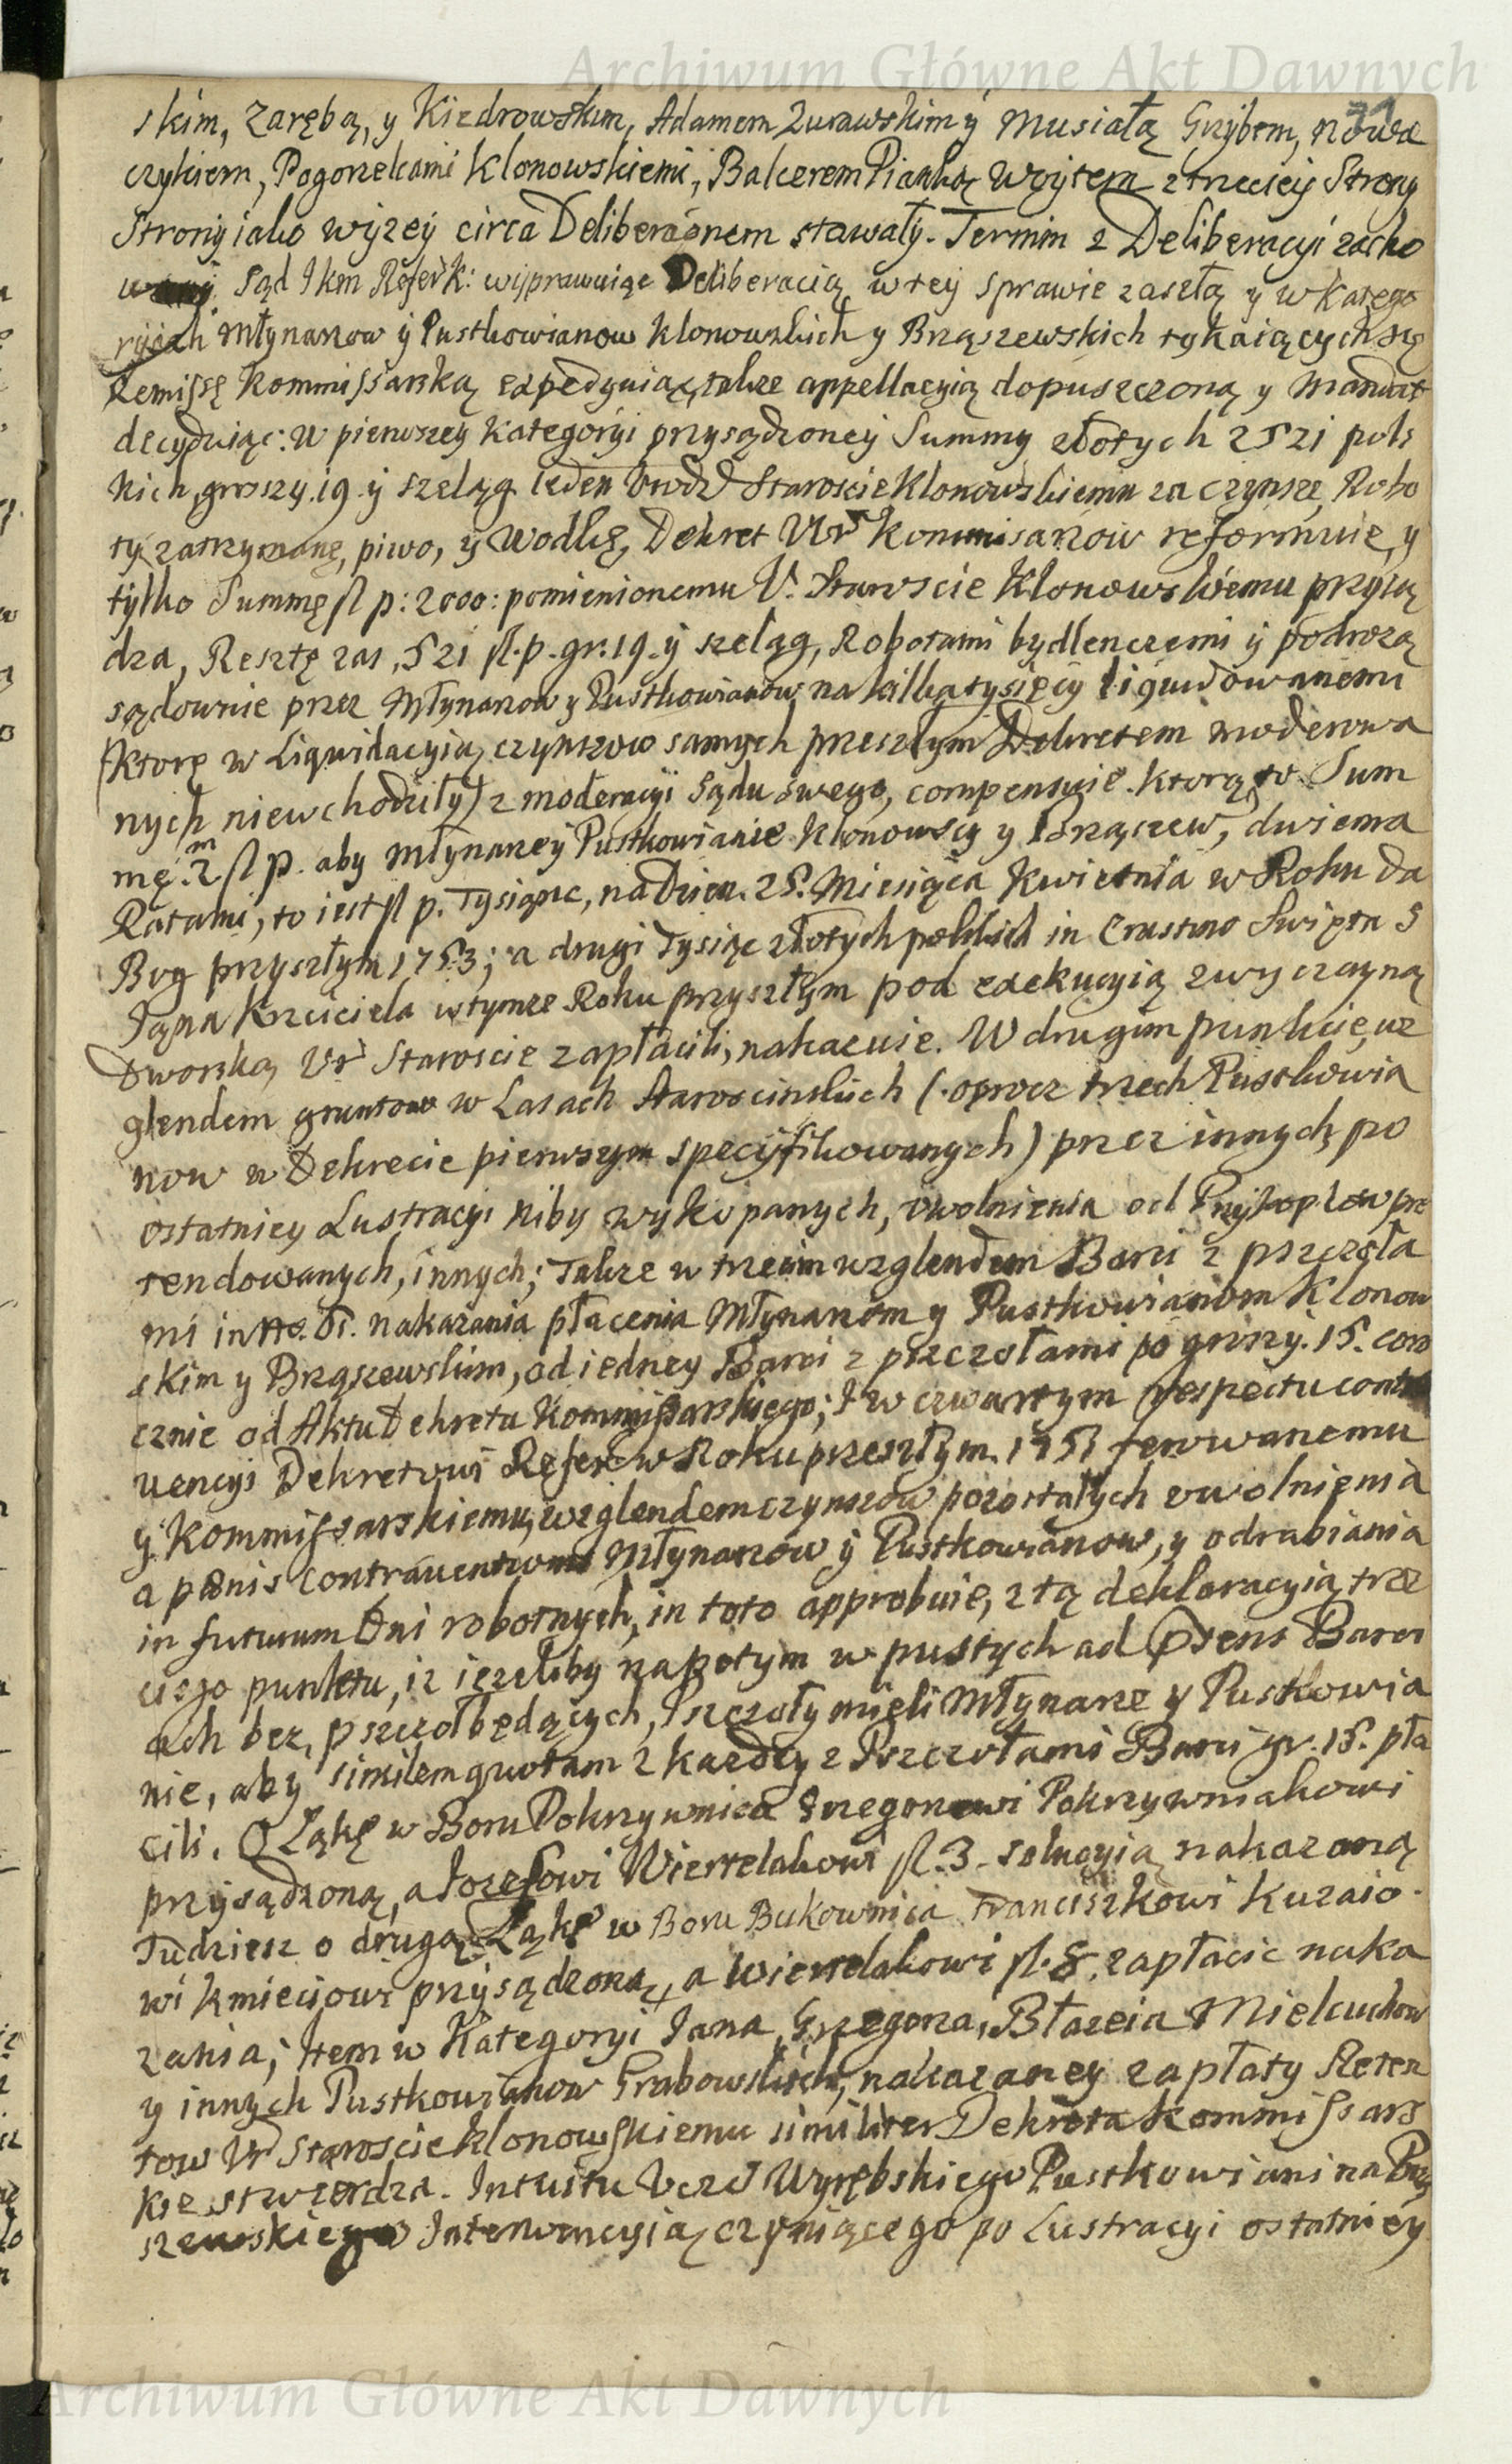 Archiwum Główne Akt Dawnych
71
skim, Zarębą, y Kiedrowskim, Adamem Zurawskim ÿ Musiałą Grÿbem, Nowa
czykiem, Pogorzelcami Klonowskiemi, Balcerem Pianką Woytem z trzeciey Strony
Strony iako wyzey circa Deliberaōnem stawały. Termin z Deliberacyi zacho
wany. Sąd Jkm Referk: wyprawuiąc Deliberacią w tey sprawie zaszłą y w katego
ryiach Młynarzow ÿ Pustkowianow Klonowskich y Brąszewskich tykaiących się
Remissę Kommissarską expedyuiąc, takze appellacyią dopuszczoną y Mandat
decyduiąc: W pierwszey kategoryi przysądzoney Summy złotych 2521 pols
kich, groszy. 19. ÿ szeląg ieden Urod Staroscie Klonowskiemu za czynsze, Robo
ty zatrzymane, piwo, ÿ Wodkę, Dekret Ur Kommisarzow reformuie, y
tylko Summę fl p: 2000: pomienionemu U. Staroscie Klonowskiemu przysą
dza, Resztę zas, 521 fl. p. gr. 19. ÿ szeląg, Robotami bydlenczemi ÿ podrozą
sądownie przez Młynarzow y Pustkowianow na kilka tysięcy liquidowanemi
(ktore w Liquidacyią czynszow samych przeszłym Dekretem moderowa
nych niewchodziły) z moderacyi Sądu swego, compensuie. ktorą to Sum
mę. 2m fl p. aby Młynarze ÿ Pustkowianie Klonowscy y Brąszew, dwiema
Ratami, to iest fl p. Tysiąc, na Dzien. 25. Miesiąca Kwietnia w Roku da
Bog przyszłym 1753; a drugi Tysiąc złotych polskich in Crastino Swięta S
Jana Krzciciela w tymze Roku przyszłym pod exekucyią zwyczayną
Dworską Ur Staroscie zapłacili, nakazuie. W drugim punkcie, wz
glendem gruntow w Lasach Staroscinskich (oprocz trzech Pustkowia
now w Dekrecie pierwszym specyfikowanych) przez innych po
ostatniey Lustracyi niby wykopanych, uwolnienia od Przykopkow pre
tendowanych, innych; Takze w trzecim wzglendem Barci z pszczoła
mi in No. 05. nakazania płacenia Młynarzom y Pustkowianom Klonow
skim y Brąszewskim, od iedney Barci z pszczołami po groszy. 15. coro
cznie od Aktu Dekretu Kommissarskiego; I w czwartym respectu contra
uencyi Dekretowi Refer w Roku przeszłym. 1751 ferowanemu
y Kommissarskiemu, wzglendem czynszow pozostałych uwolnienia
a pœnis contrauentionis Młynarzow ÿ Pustkowianow, y odrabiania
in futurum Dni robotnych, in toto approbuie, z tą deklaracyią trze
ciego punktu, iz iezeliby napotym w pustych ad præsens Barci
ach bez, pszczoł będących, Pszczoły mieli Młynarze y Pustkowia
nie, aby similem quotam z kazdey z Pszczołami Barci gr. 15. pła
cili. O Łąkę w Boru Pokrzywnica Grzegorzowi Pokrzywniakowi
przysądzoną, a Jozefowi Wiertelakowi fl. 3. solucyią nakazaną
Tudziesz o drugą Łąkę w Boru Bukownica Franciszkowi Kuzaio
wi kmieciowi przysądzoną, a Wiertelakowi fl. 8. zapłacic naka
zania; Item w Kategoryi Jana, Grzegorza, Błazeia Mielcuchow
y innych Pustkowianow Grabowskich, nakazaney zapłaty Reten
tow Ur Staroscie Klonowskiemu similiter Dekreta Kommissars
kie stwierdza. Intuitu Vczc Wyrębskiego Pustkowianina Brą
szewskiego Interwencyią czyniącego po Lustracyi ostatniey
Archiwum Główne Akt Dawnych